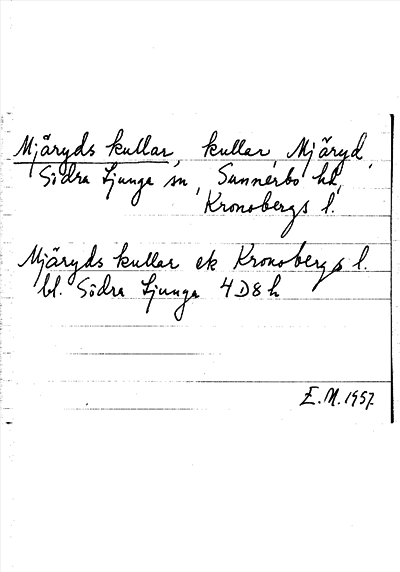 Mjäryds kullar, kullar, Mjäryd,
Södra Ljunga sn, Sunnerbo hd,
Kronobergs l.
Mjäryds kullar ek Kronobergs l.
bl. Södra Ljunga 4D8h
E.M. 1957.